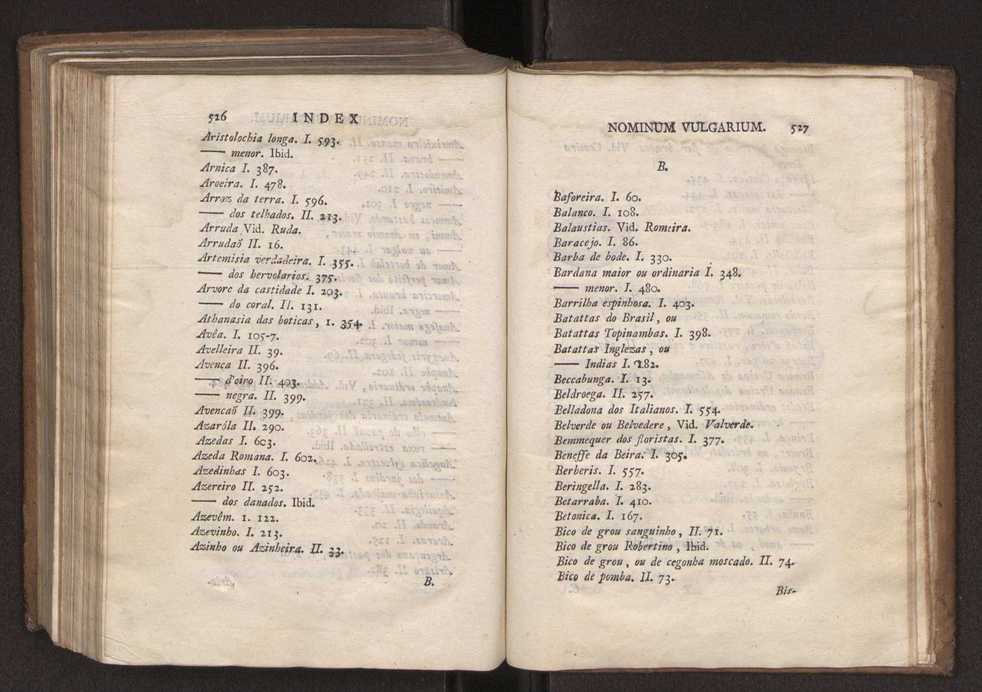 526 INDEX
Aristolochia longa. I. 593.
—— menor. Ibid.
Arnica I. 387.
Aroeira. I. 478.
Arroz da terra. I. 596.
—— dos telhados. II. 213.
Arruda Vid. Ruda.
Arrudaõ II. 16.
Artemisia verdadeira. I. 355.
—— dos hervolarios. 375.
Arvore da castidade I. 203.
—— do coral. II. 131.
Athanasia das boticas, 1. 354.
Avêa. I. 105-7.
Avelleira II. 39.
Avenca II. 396.
—— d'oiro II. 403.
—— negra. II. 399.
Avencaõ II. 399.
Azaróla II. 290.
Azedas I. 603.
Azeda Romana. I. 602.
Azedinhas I. 603.
Azereiro II. 252.
—— dos danados. Ibid.
Azevêm. 1. 122.
Azevinho. I. 213.
Azinho ou Azinheira. II. 33.
B.
NOMINUM VULGARIUM. 527
B.
Baforeira. I. 60.
Balanco. I. 108.
Balaustias. Vid. Romeira.
Baracejo. I. 86.
Barba de bode. I. 330.
Bardana maior ou ordinaria I. 348.
—— menor. I. 480.
Barrilha espinhosa. I. 403.
Batattas do Brasil, ou
Batattas Topinambas. I. 398.
Batattas Inglezas, ou
—— Indias I. 282.
Beccabunga. I. 13.
Beldroega. II. 257.
Belladona dos Italianos. I. 554.
Belverde ou Belvedere, Vid. Valverde.
Bemmequer dos floristas. I. 377.
Beneffe da Beira. I. 305.
Berberis. I. 557.
Beringella. I. 283.
Betarraba. I. 410.
Betonica. I. 167.
Bico de grou sanguinho, II. 71.
Bico de grou Robertino, Ibid.
Bico de grou, ou de cegonha moscado. II. 74.
Bico de pomba. II. 73.
Bis-